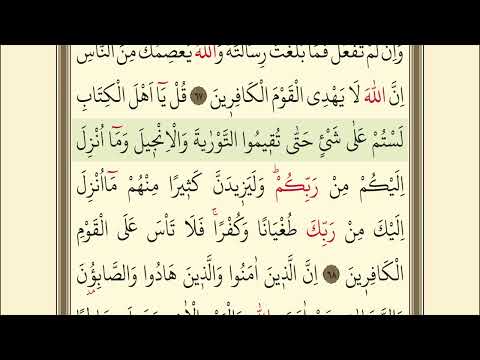 وَاِنْ لَمْ تَفْعَلْ فَمَا بَلَّغْتَ رِسَالَتَهُ وَاللّٰهُ يَعْصِمُكَ مِنَ النَّاسِ
اِنَّ اللّٰهَ لَا يَهْدِى الْقَوْمَ الْكَافِر۪ينَ ٦٧ قُلْ يَٓا اَهْلَ الْكِتَابِ
لَسْتُمْ عَلٰى شَىْءٍ حَتّٰى تُق۪يمُوا التَّوْرٰيةَ وَالْاِنْج۪يلَ وَمَٓا اُنْزِلَ
اِلَيْكُمْ مِنْ رَبِّكُمْۜ وَلَيَز۪يدَنَّ كَث۪يرًا مِنْهُمْ مَٓا اُنْزِلَ
اِلَيْكَ مِنْ رَبِّكَ طُغْيَانًا وَكُفْرًاۚ فَلَا تَاْسَ عَلَى الْقَوْمِ
الْكَافِر۪ينَ ٦٨ اِنَّ الَّذ۪ينَ اٰمَنُوا وَالَّذ۪ينَ هَادُوا وَالصَّابِؤُ۫نَ